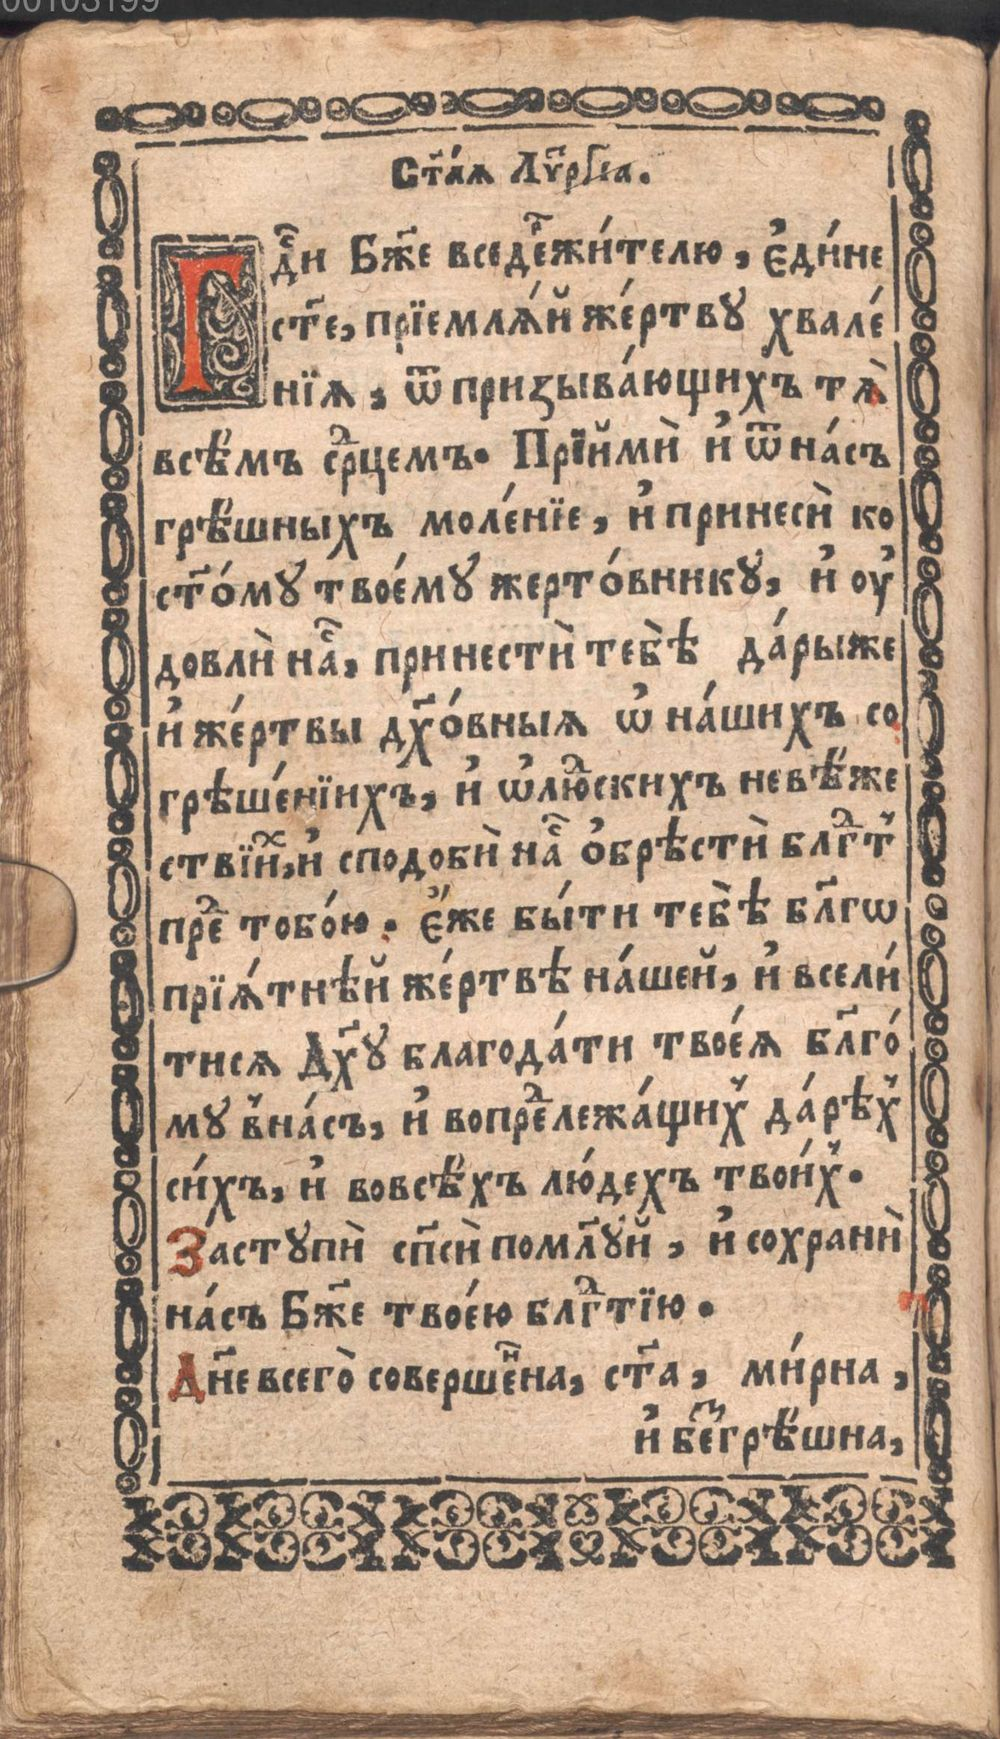 00103199
Ст҃а́ѧ Лѵ҃рг҃іа.
Гдⷭ҇и Бж҃е вседеⷬ҇жи́телю, є҆ди́не
ст҃е, прїемлѧ́й же́ртвꙋ хвале́
нїѧ, ѿ призыва́ющихъ тѧ̀
всѣ́мъ срⷣцемъ. Прїи́ми̇̀ и҆ ѿ на́съ
грѣ́шныхъ моле́нїе, и҆ принеси̇̀ ко
ст҃о́мꙋ твоемꙋ̀ жерто́вникꙋ, и҆ оу҆
довли̇̀ наⷭ҇, принести̇̀ тебѣ̀ да́рыже
и҆ же́ртвы дх҃о́вныѧ ѡ҆ на́шихъ со
грѣше́нїихъ, и҆ ѡ҆люⷣскихъ невѣ́же
ствїиⷯ, и҆ сподоби̇̀ наⷭ҇ ѻ҆брѣсти̇̀ блгⷣтⷽ
преⷣ тобо́ю. є҆́же бы́ти тебѣ̀ бл҃гѡ
прїѧ́тнѣй же́ртвѣ на́шей, и҆ всели́
тисѧ Дх҃ꙋ благода́ти твоеѧ̀ бл҃го́
мꙋ в̾на́съ, и҆ вопреⷣлежа́щих̾ да́рѣх̾
си́хъ, и҆ вовсѣ́хъ лю́дехъ твои́х̾.
Застꙋпи̇̀ сп҃си̇̀ помл҃ꙋй, и҆ сохрани̇̀
на́съ Бж҃е твое́ю блгⷣтїю.
Дн҃е всего̀ совершеⷩ҇на, ст҃а, ми́рна,
и҆ беⷥгрѣ́шна,